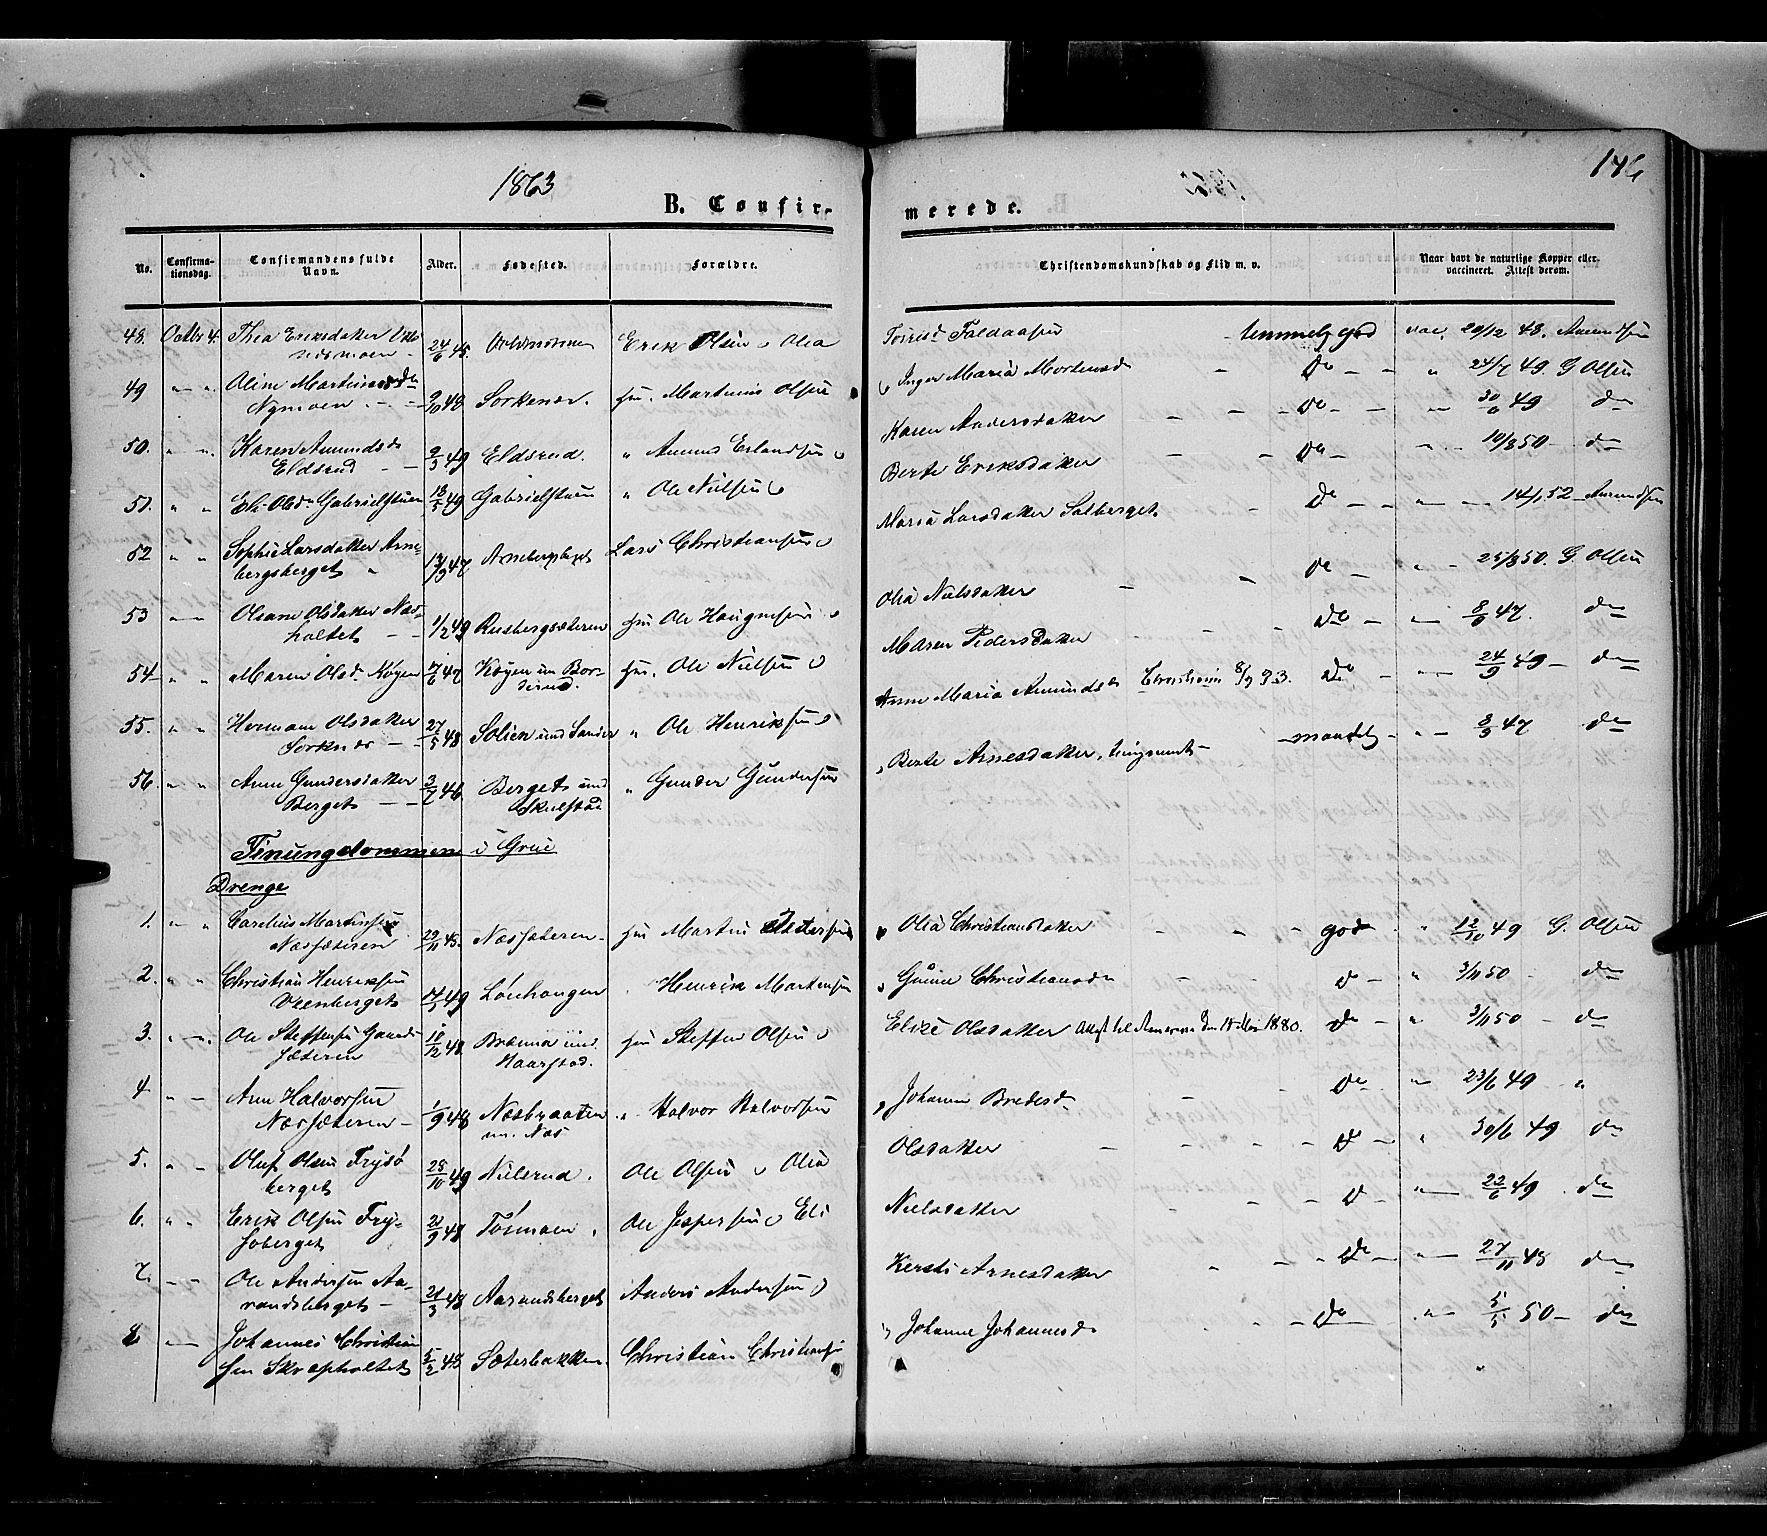 1863
146
B. Confir-
merede.
No.
Confirma-
tionsdag.
Confirmandens fulde
Navn.
Alder.
Fødested.
Forældre.
Christendomskundskab og Flid m. v.
Naar havt de naturlige Kopper eller
vaccineret. Attest derom.
48. Octbr 4. Thea Eriksdatter
24/6 48. Erik Olsen o Olia temmelig god vac. 20/12 48. Amundsen
49 " " Oline Martinusdr
Nymoen 9/10 48 Sorknes. Hu. Martinus Olsen o Inger Maria Mortensdr Do " 24/7 49. G Olsen
50. " " Karen Amundsdr
Eldsrud 2/3 49 Eldsrud. " Amund Erlandsen o Karen Andersdatter Do " 30/6 49 do
51. " " Eli Olsdr Gabrielstuen 18/5 49 Gabrielstuen " Ole Nielsen o Berte Eriksdatter Do " 10/8 50 do
52 " " Sophie Larsdatter Arne-
bergsberget 13/9 47 Arnebergsberget Lars Christiansen o Maria Larsdatter Solberget Do " 14/1 52 Amundsen
53 " " Oleane Olsdatter Næs-
holtet 1/2 49 Rusbergsæteren Hu Ole Haagensen o Olia Nielsdatter Do " 25/8 50. G. Olsen
54 " " Maren Olsd. Køyen 7/6 47 Køyen un Bor-
serud. Hu. Ole Nielsen o Maren Pedersdatter Do " 8/9 47. do
55. " " Hermane Olsdatter
Sorknes 27/5 48 Solien und Sander " Ole Henriksen o Anne Maria Amundsdr Christiania 8/9 93. Do " 24/9 49 do
56. " " Anne Gundersdatter
Berget 3/7 46 Berget und
Skulstad " Gunder Gundersen , Berte Arnesdatter, maadelig " 3/9 47 do
Finungdommen i Grue
Drenge
1. " " Carelius Martinsen
Næssæteren 29/11 48. Næssæteren Hu Martin Pedersen o Olia Christiansdatter god " 12/10 49 G. Olsen
2. " " Christian Henriksen
Vrenberget 14/5 49 Lønhaugen . Henrik Mortensen o Gunine Christiansdr Do " 3/11 50 do
3. " " Ole Steffensen Gaard-
sæteren 10/12 48 Brænna und.
Kaarstad. Hu Steffen Olsen o Elise Olsdatter Attest til Amerika den 15 Mai 1880. Do " 3/11 50 do
4 " " Arne Halvorsen
Næssæteren 1/9 48 Næsbraaten
un. Næs " Halvor Halvorsen , Johanne Bredesdr Do " 23/6 49 "
5. " " Oluf Olsen Frysø
berget 28/10 49 Nielsrud. Ole Olsen o Olia Olsdatter Do " 30/6 49 do
6. " " Erik Olsen Fry-
søberget 21/9 48 Tørmoen. Ole Jespersen o Eli Nielsdatter Do " 22/6 49 do
7. " " Ole Andersen Aa-
randsberget 21/3 48 Aarandsberget Anders Andersen o Kersti Arnesdatter Do " 27/11 48 do
8 " " Johannes Christian
sen Skrapholtet 5/2 48 Sæterbakken. Christian Christiansen o Johanne Johannesdr Do " 5/5 50 do